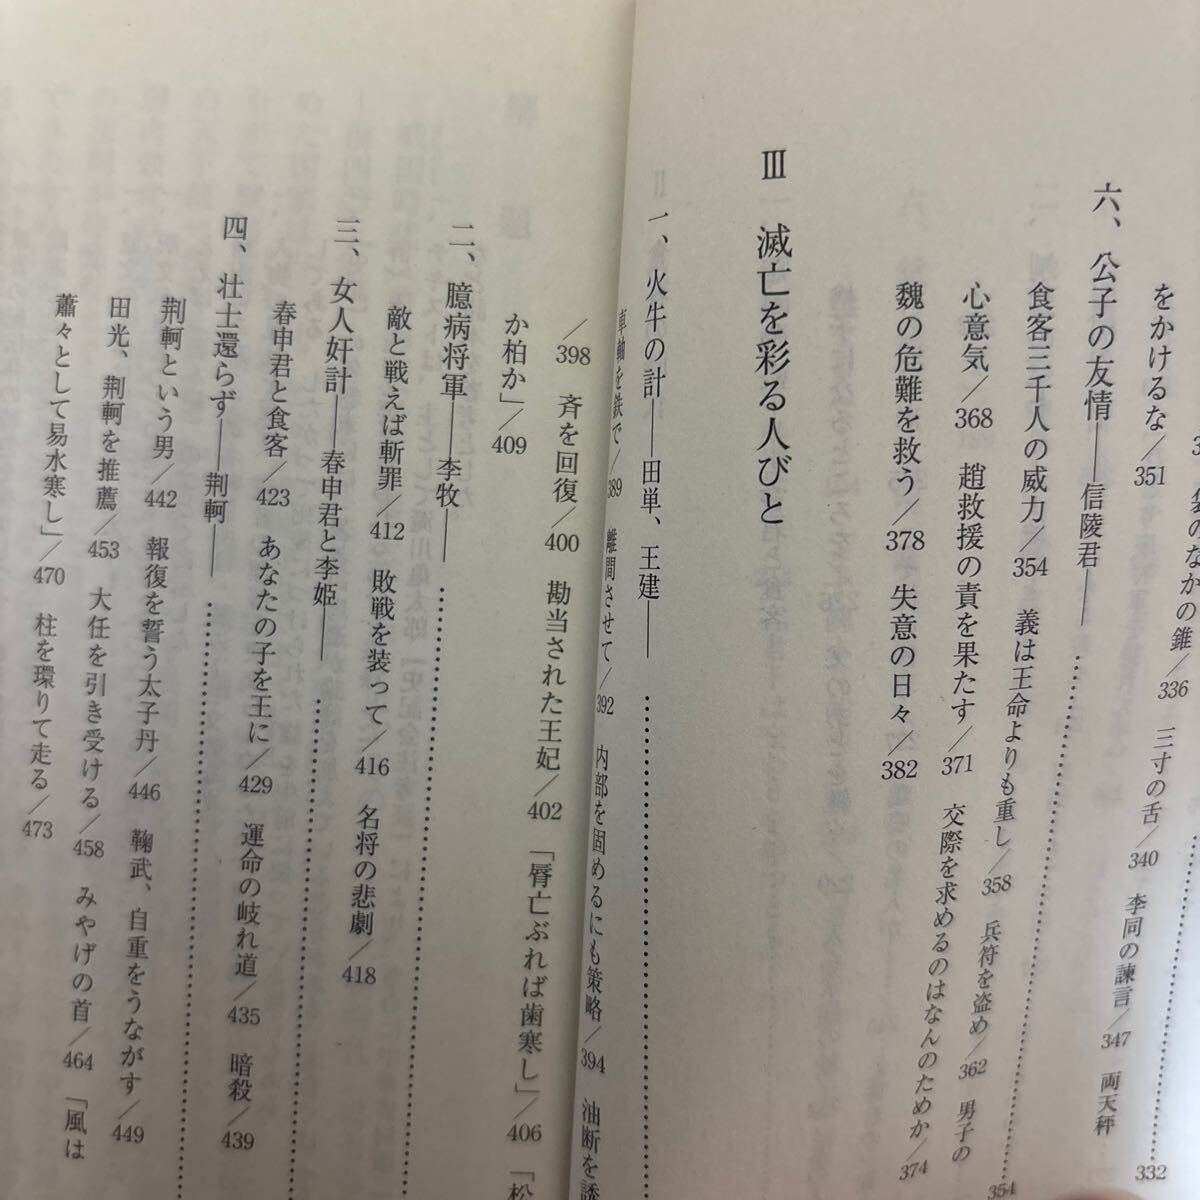 袋のなかの錐／336　三寸の舌／340　李同の諫言／347　両天秤
をかけるな／351
六、公子の友情――信陵君―― 354
食客三千人の威力／354　義は王命よりも重し／358　兵符を盗め／362　男子の
心意気／368　趙救援の責を果たす／371　交際を求めるのはなんのためか／374
魏の危難を救う／378　失意の日々／382
Ⅲ　滅亡を彩る人びと
一、火牛の計――田単、王建――
車軸を鉄で／389　離間させて／392　内部を固めるにも策略／394　油断を誘
／398　斉を回復／400　勘当された王妃／402　「脣亡ぶれば歯寒し」／406　「松
か柏か」／409
二、臆病将軍――李牧――
敵と戦えば斬罪／412　敗戦を装って／416　名将の悲劇／418
三、女人奸計――春申君と李姫――
春申君と食客／423　あなたの子を王に／429　運命の岐れ道／435　暗殺／439
四、壮士還らず――荆軻――
荆軻という男／442　報復を誓う太子丹／446　鞠武、自重をうながす／449
田光、荆軻を推薦／453　大任を引き受ける／458　みやげの首／464　「風は
蕭々として易水寒し」／470　柱を環りて走る／473